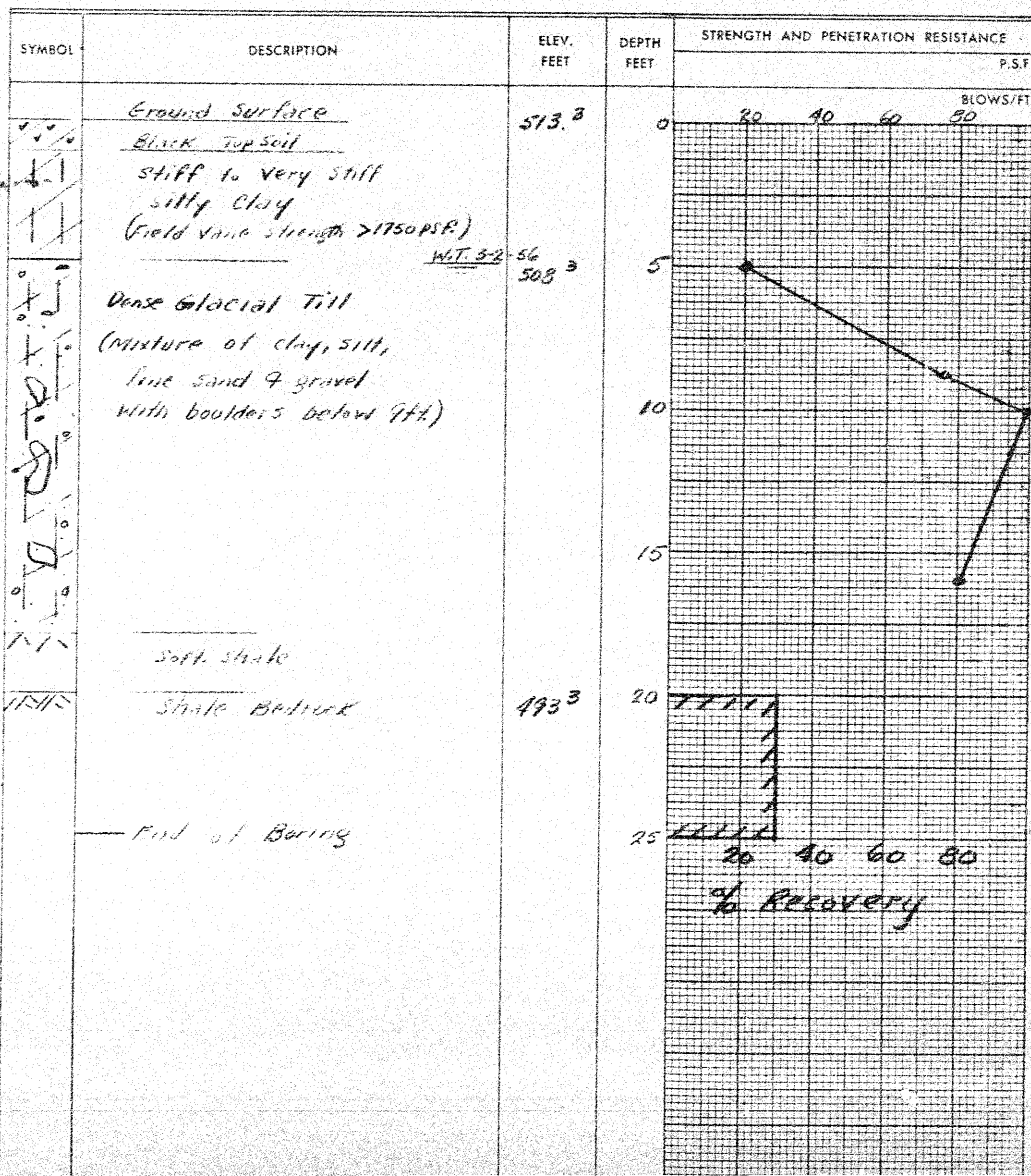 SYMBOL
DESCRIPTION
ELEV. FEET
DEPTH FEET
STRENGTH AND PENETRATION RESISTANCE
P.S.F
BLOWS/FT
20 40 60 80
Ground Surface
513.3
0
Black Top Soil
stiff to very stiff
silty Clay
(Field Vane strength >1750 PSF.)
W.T. 5-2-56
508 3
5
Dense Glacial Till
(Mixture of clay, silt,
fine sand & gravel
with boulders below 9ft.)
10
15
Soft Shale
Shale Bedrock
493 3
20
End of Boring
25
20 40 60 80
% Recovery